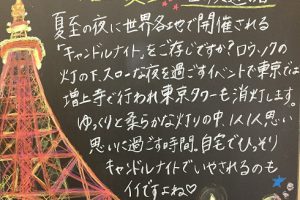 夏至の夜に世界各地で開催される
「キャンドルナイト」をご存じですか?ロウソクの
灯の下、スローな夜を過ごすイベントで東京では
増上寺で行われ東京タワーも消灯します。
ゆっくりと柔らかな灯りの中、1人1人思い
思いに過ごす時間。自宅でひっそり
キャンドルナイトでいやされるのも
イイですよね♡